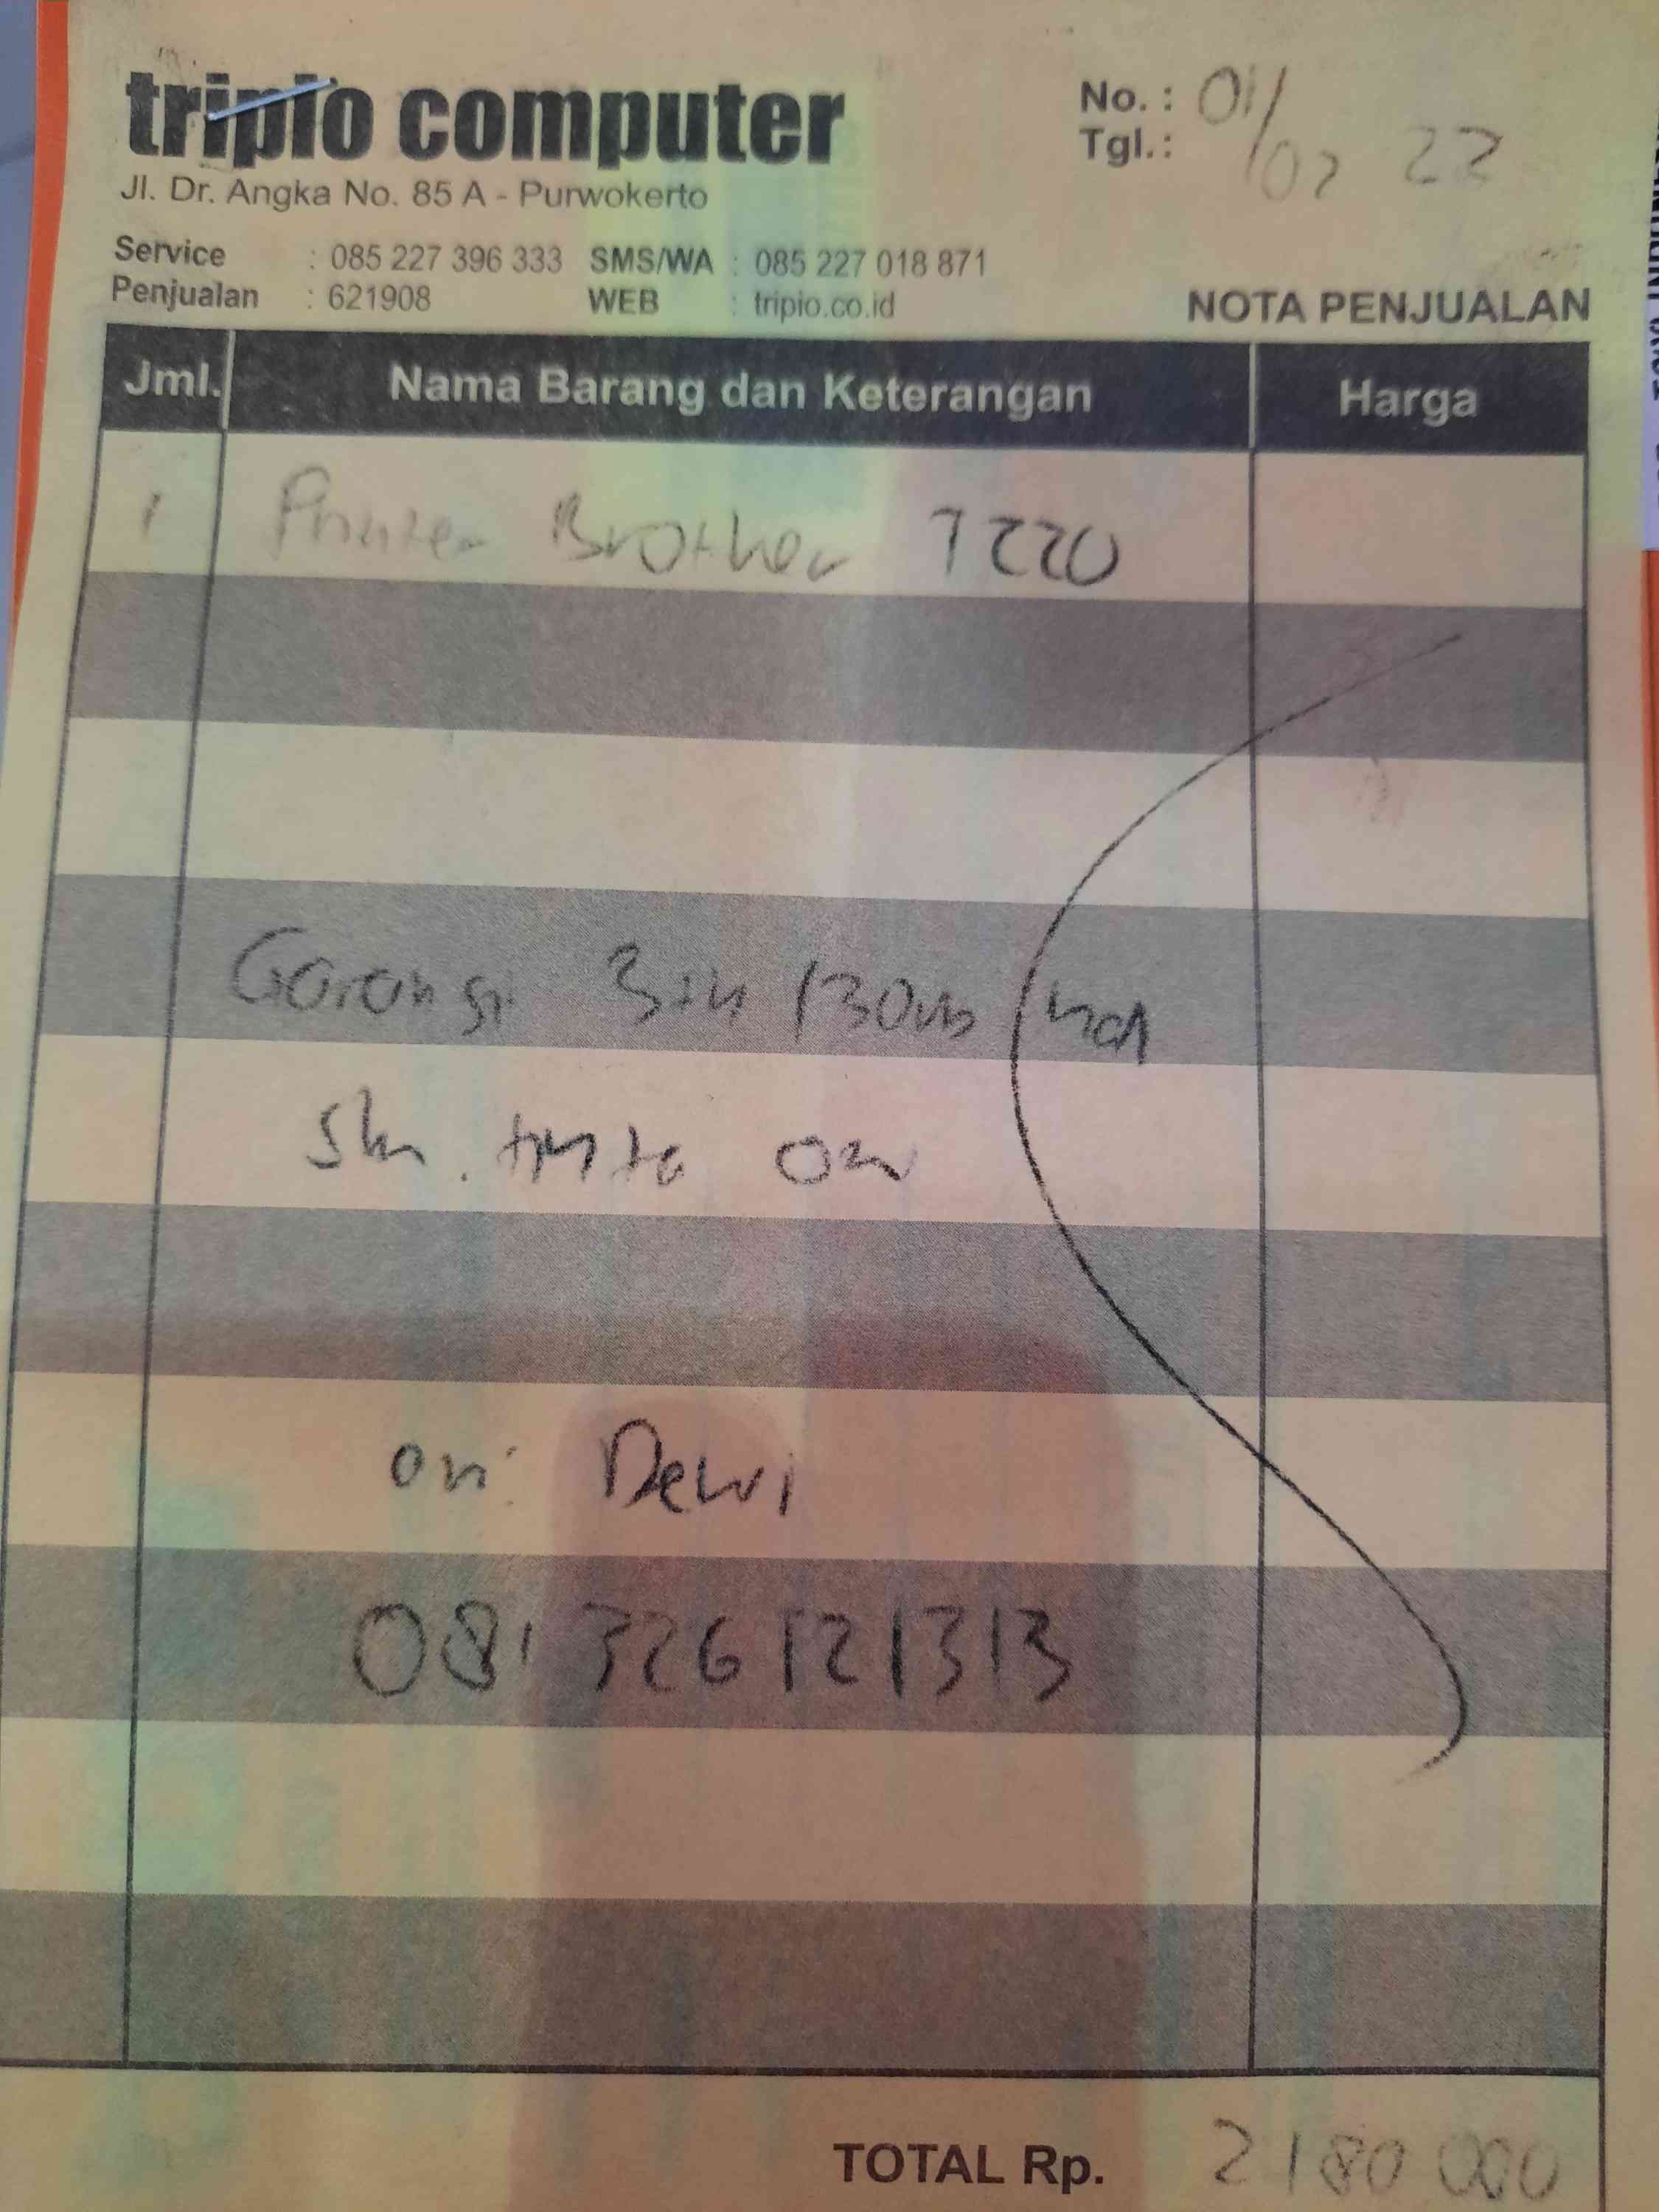 tripio computer
Jl. Dr. Angka No. 85 A - Purwokerto
No. : 01/
Tgl.: /02 22
Service : 085 227 396 333 SMS/WA : 085 227 018 871
Penjualan : 621908 WEB : tripio.co.id
NOTA PENJUALAN
Jml. Nama Barang dan Keterangan Harga
1 Printer Brother T220
Garansi 3th /30rb
tinta
Dewi
081 326 121313
TOTAL Rp. 2180 000